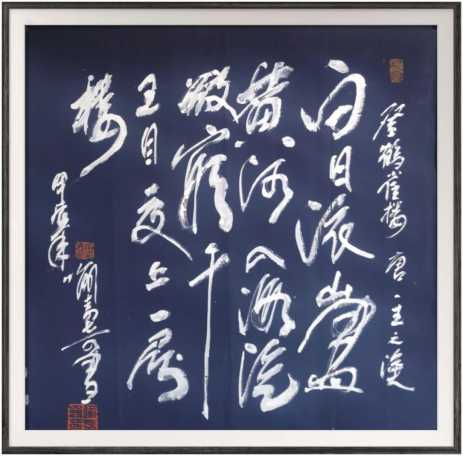 登鹳雀楼 唐·王之涣
白日依山盡
黄河入海流
欲窮千
里目更上一層
楼
甲辰年